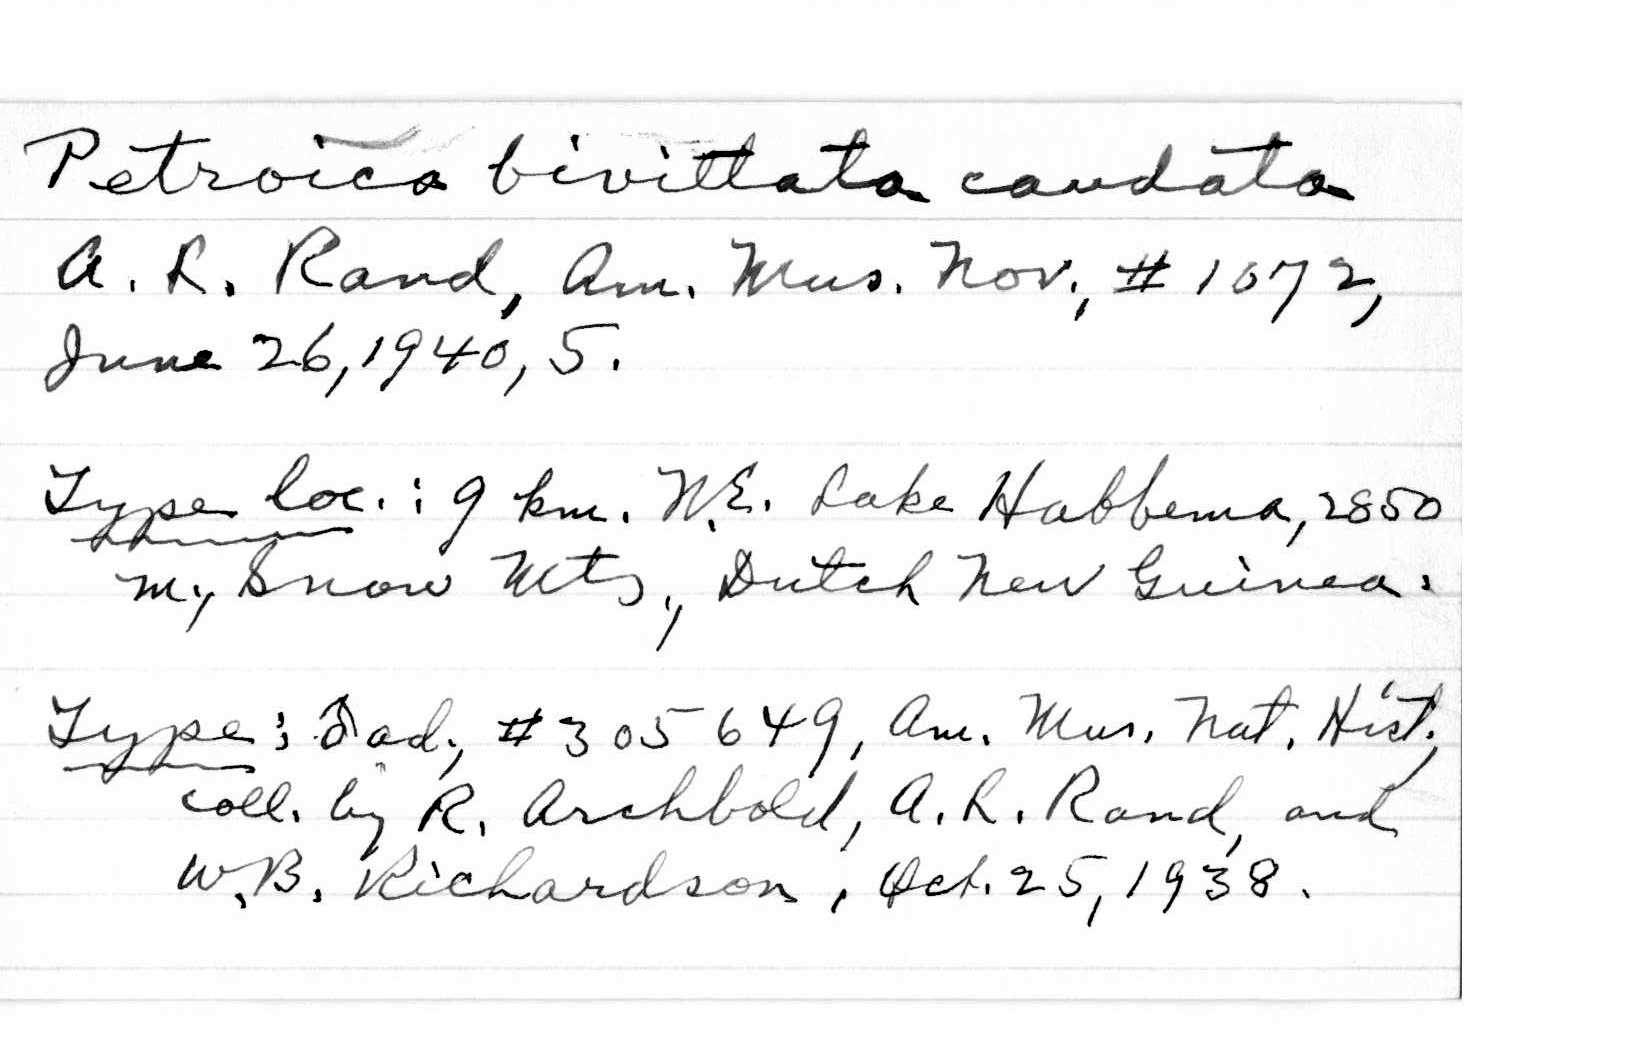 Petroica bivittata caudata
A. L. Rand, Am. Mus. Nov., # 1072,
June 26, 1940, 5.
Type loc.: 9 km. N.E. Lake Habbema, 2850
m., Snow Mts., Dutch New Guinea.
Type: ♂ ad., # 305649, Am. Mus. Nat. Hist.,
coll. by R. Archbold, A. L. Rand, and
W. B. Richardson, Oct. 25, 1938.